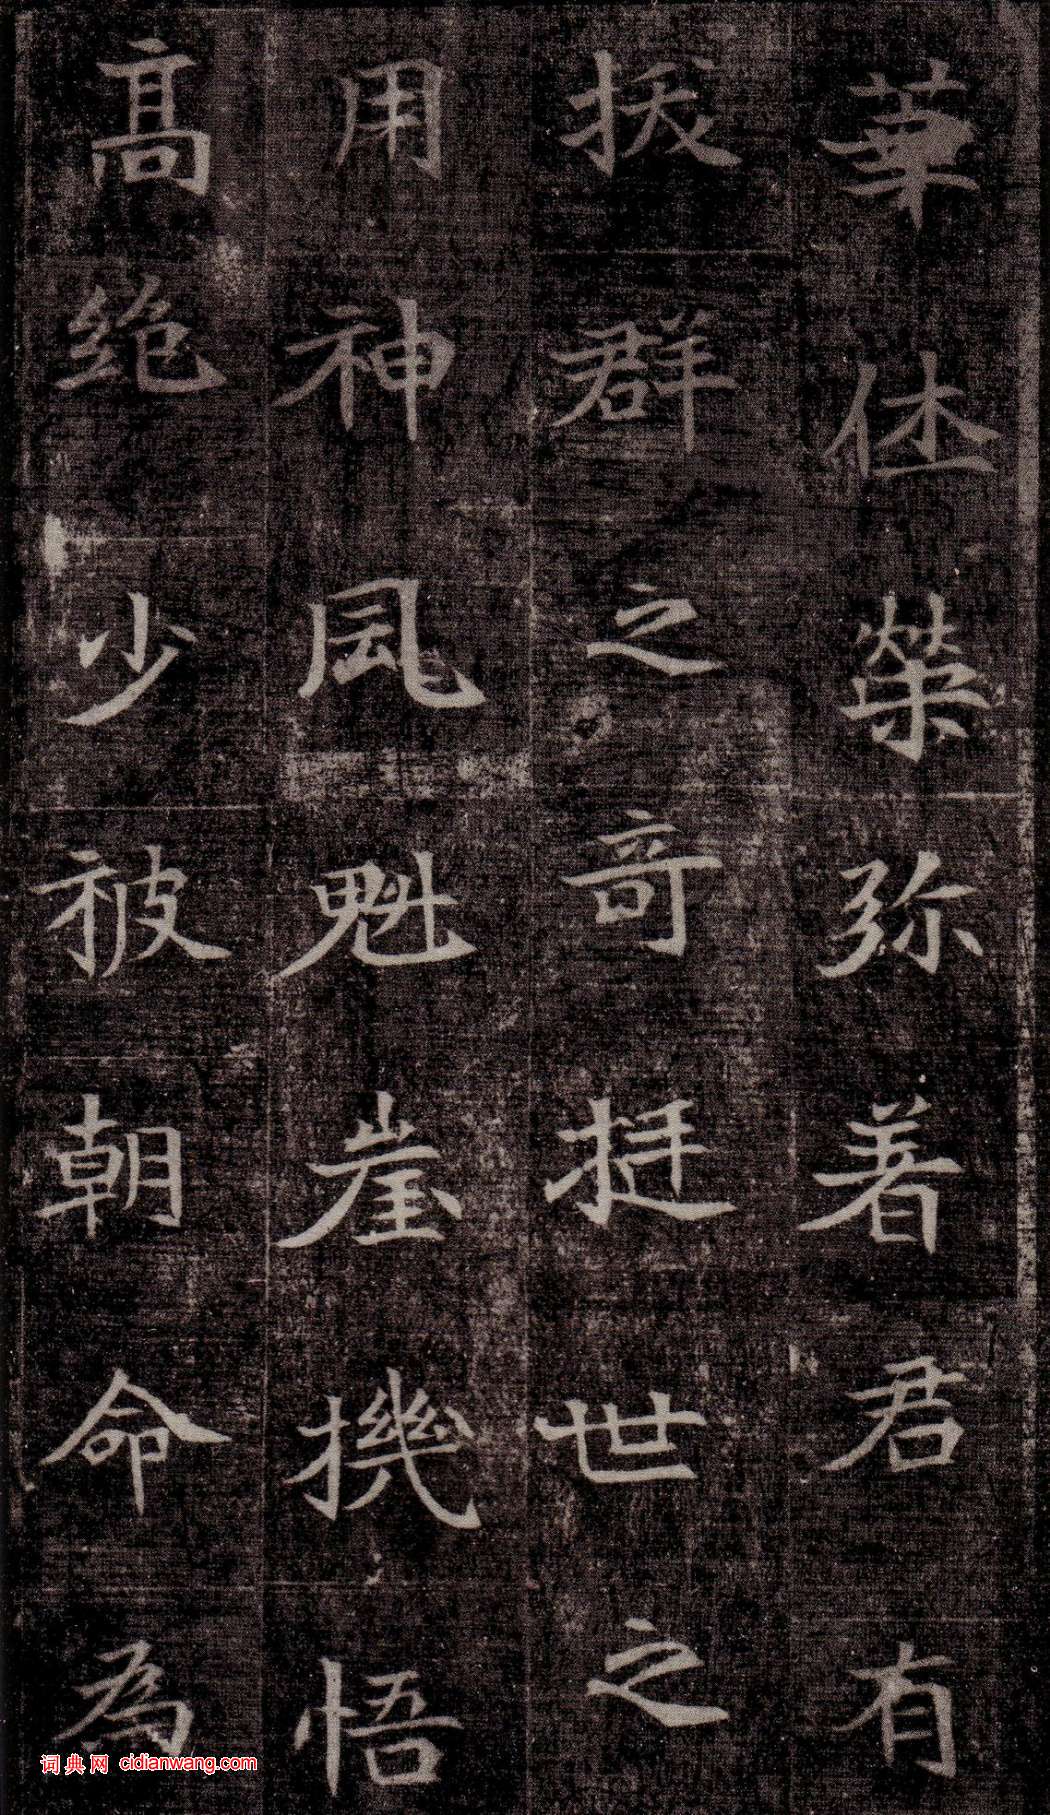 華体榮弥著君有
拔群之奇挺世之
用神風魁崖機悟
高絶少被朝命為
词典网 cidianwang.com